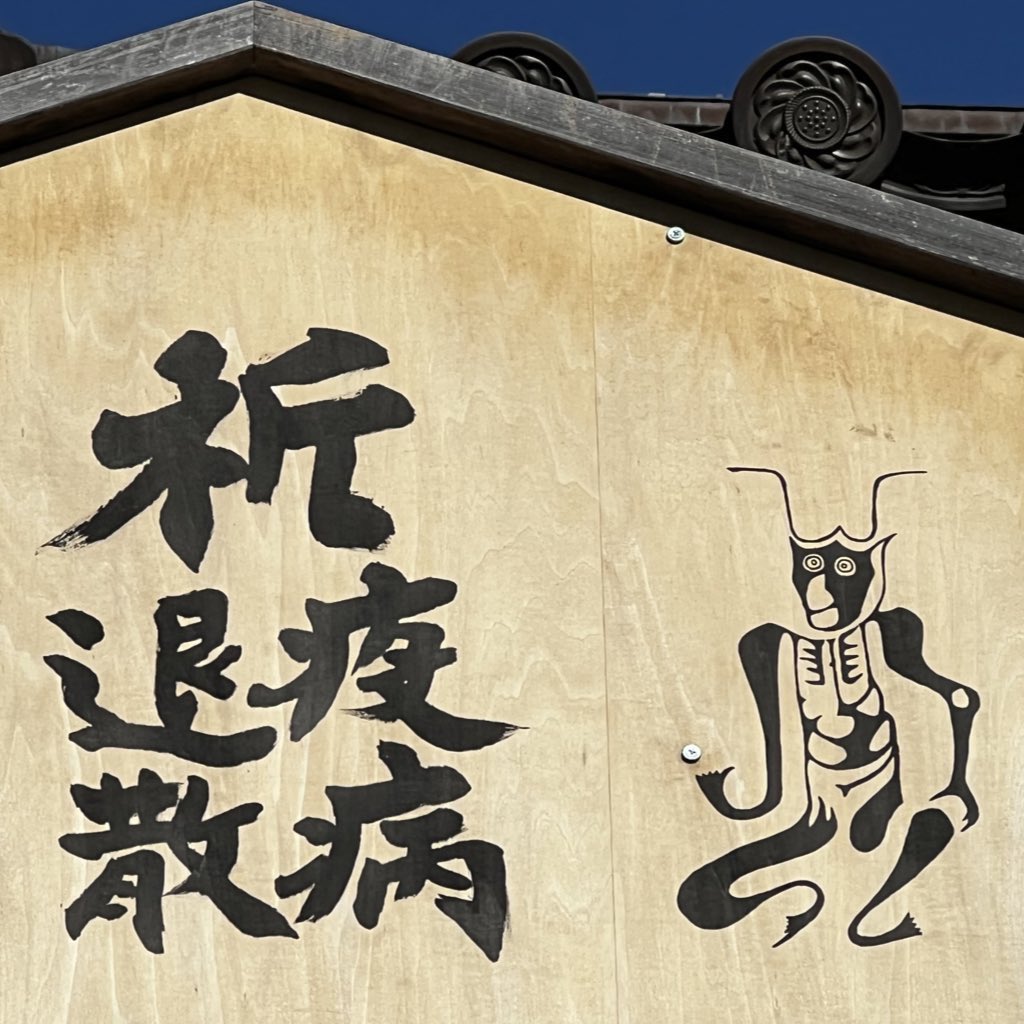 祈
疫病
退散